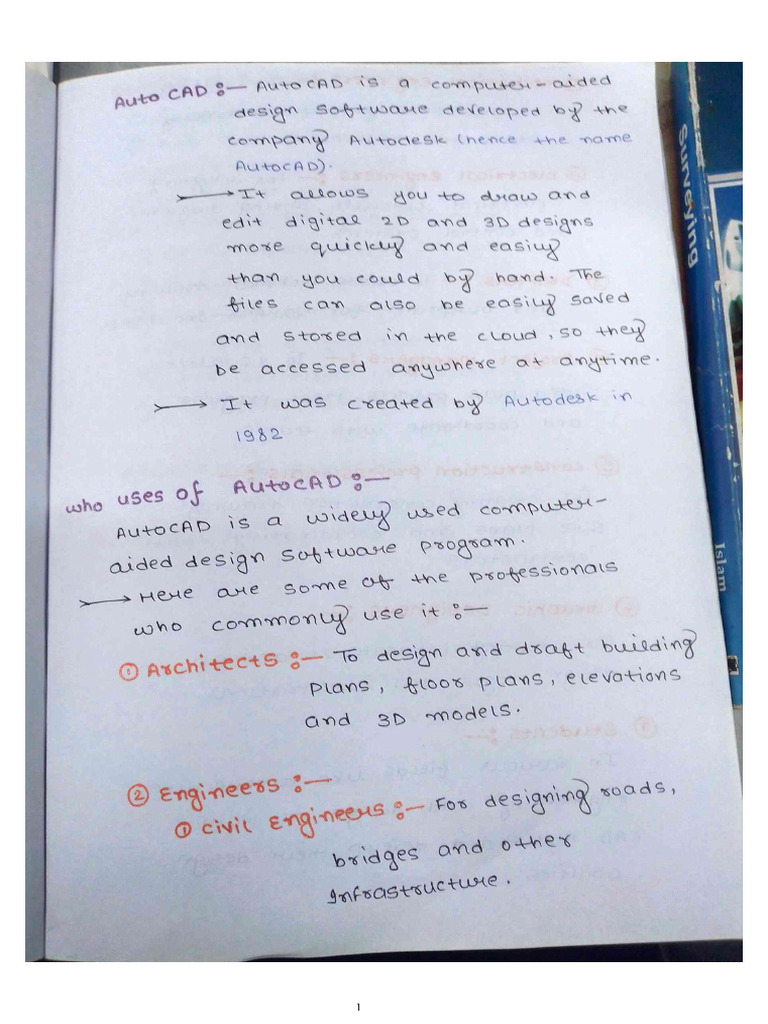 Auto CAD :— AutoCAD is a computer-aided
design software developed by the
company Autodesk (hence the name
AutoCAD).
→ It allows you to draw and
edit digital 2D and 3D designs
more quickly and easily
than you could by hand. The
files can also be easily saved
and stored in the cloud, so they
be accessed anywhere at anytime.
→ It was created by Autodesk in
1982
who uses of AutoCAD :—
AutoCAD is a widely used computer-
aided design software program.
→ Here are some of the professionals
who commonly use it :—
① Architects :— To design and draft building
plans, floor plans, elevations
and 3D models.
② Engineers :—
① Civil Engineers :— For designing roads,
bridges and other
Infrastructure.
Surveying
Islam
1